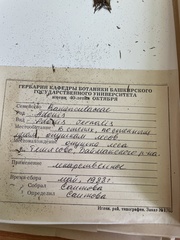 ГЕРБАРИЙ КАФЕДРЫ БОТАНИКИ БАШКИРСКОГО
ГОСУДАРСТВЕННОГО УНИВЕРСИТЕТА
имени 40-летия ОКТЯБРЯ
Семейство Ranunculaceae
Род Adonis
Вид Adonis vernalis
Местообитание в степях, по
опушкам лесов
Местонахождение опушка леса
Применение лекарственное
Время сбора май, 1983 г.
Собрал Саитова
Определил Саитова